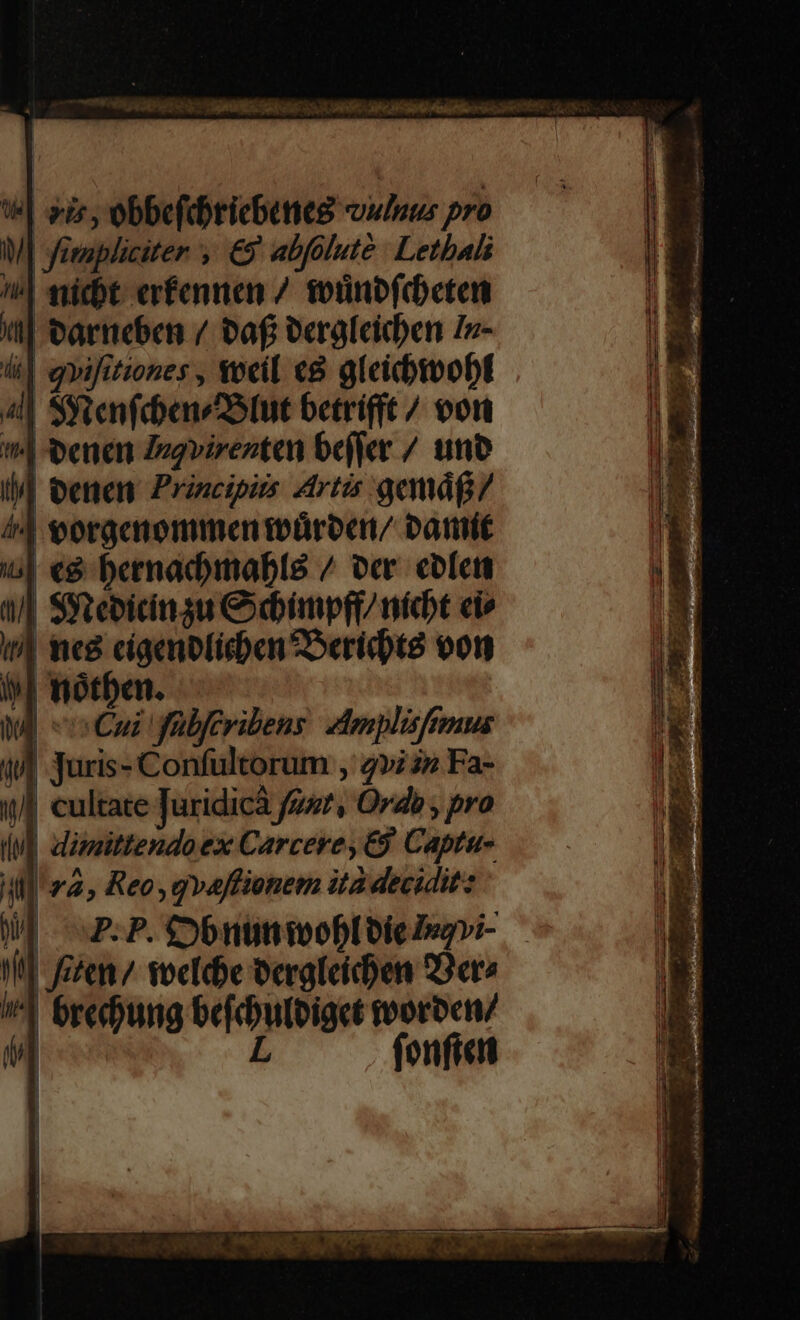 ris, obbeſchriebenes vulnus pro
ſimpliciter, & abſolutè Lethali
nicht erkennen / wündſcheten
darneben / daß dergleichen In-
qviſitiones, weil es gleichwohl
Menſchen-Blut betrifft / von
denen Inqvirenten beſſer / und
denen Principiis Artis gemäß /
vorgenommen würden / damit
es hernachmahls / der edlen
Medicin zu Schimpff / nicht ei-
nes eigendlichen Berichts von
nöthen.
Cui ſubſcribens Amplisſimus
Juris-Conſultorum, qvi in Fa-
cultate Juridicà ſunt, Ordo, pro
dimittendo ex Carcere, & Captu-
râ, Reo, qvæſtionem ità decidit:
P. P. Ob nun wohl die Inqvi-
ſiten / welche dergleichen Ver-
brechung beſchuldiget worden /
L ſonſten